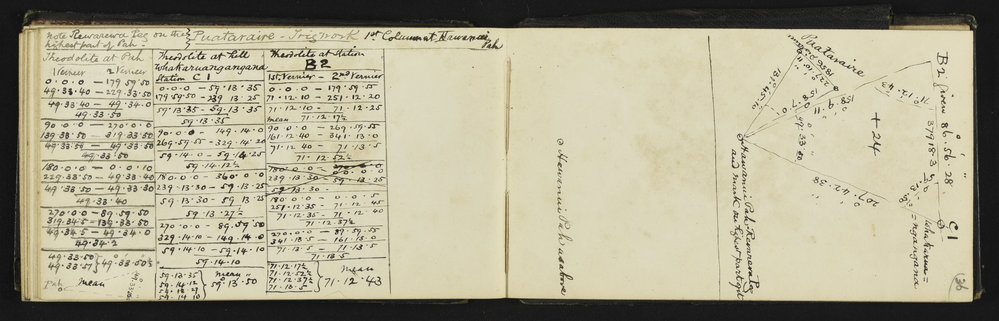 note Rewarewa Peg on the highest part of Pah =
Puataraire - Trigwork 1st Column at Hawanui Pah
Theodolite at Pah
1 Vernier 2 Vernier
0.0.0 - 179.59.50
49.33.40 - 229.33.50
49.33.40 - 49.34.0
49.33.50
90.0.0 - 270.0.0
139.33.50 - 319.33.50
49.33.50 - 49.33.50
49.33.50
180.0.0 - 0.0.10
229.33.50 - 49.33.40
49.33.50 - 49.33.30
49.33.40
270.0.0 - 89.59.50
319.34.5 - 139.33.50
49.34.5 - 49.34.0
49.34.2
49.33.50
49.33.57
49.33.50½
Pah mean
Theodolite at hill
Whakaruangangana
Station C1
0.0.0 - 59.13.35
179.59.50 - 239.13.25
59.13.35 - 59.13.35
59.13.35
90.0.0 - 149.14.0
269.59.55 - 329.14.20
59.14.0 - 59.14.25
59.14.12½
180.0.0 - 360.0.0
239.13.30 - 59.13.25
59.13.30 - 59.13.25
59.13.27½
270.0.0 - 89.59.50
329.14.10 - 149.14.0
59.14.10 - 59.14.10
59.14.10
59.13.35
59.14.12
59.13.27
59.14.10
mean
59.13.50
Theodolite at Station
B2
1st. Vernier - 2nd Vernier
0.0.0 - 179.59.55
71.12.10 - 251.12.20
71.12.10 - 71.12.25
mean 71.12.17½
90.0.0 - 269.59.55
161.12.40 - 341.13.0
71.12.40 - 71.13.5
71.12.52½
180.0.0
0.0.0
239.13.30 - 59.13.25
59.13.30 -
180.0.0 - 0.0.5
251.12.35 - 71.12.45
71.12.35 - 71.12.40
71.12.37½
270.0.0 - 89.59.55
341.13.5 - 161.13.0
71.13.5 - 71.13.5
71.13.5
71.12.17½
71.12.52½
71.12.37½
71.13.5
mean
71.12.43
Hewenui Pah as above
Puataraire
132.45.10
49.33.50
158.9.11
+ 24
Hawanui Pah Rewarewa Peg
and mark on highest part of it
B2 given 86.56.28
71.12.43
37918.3
207.42.38
C1
Whakarua=
=ngangana
36